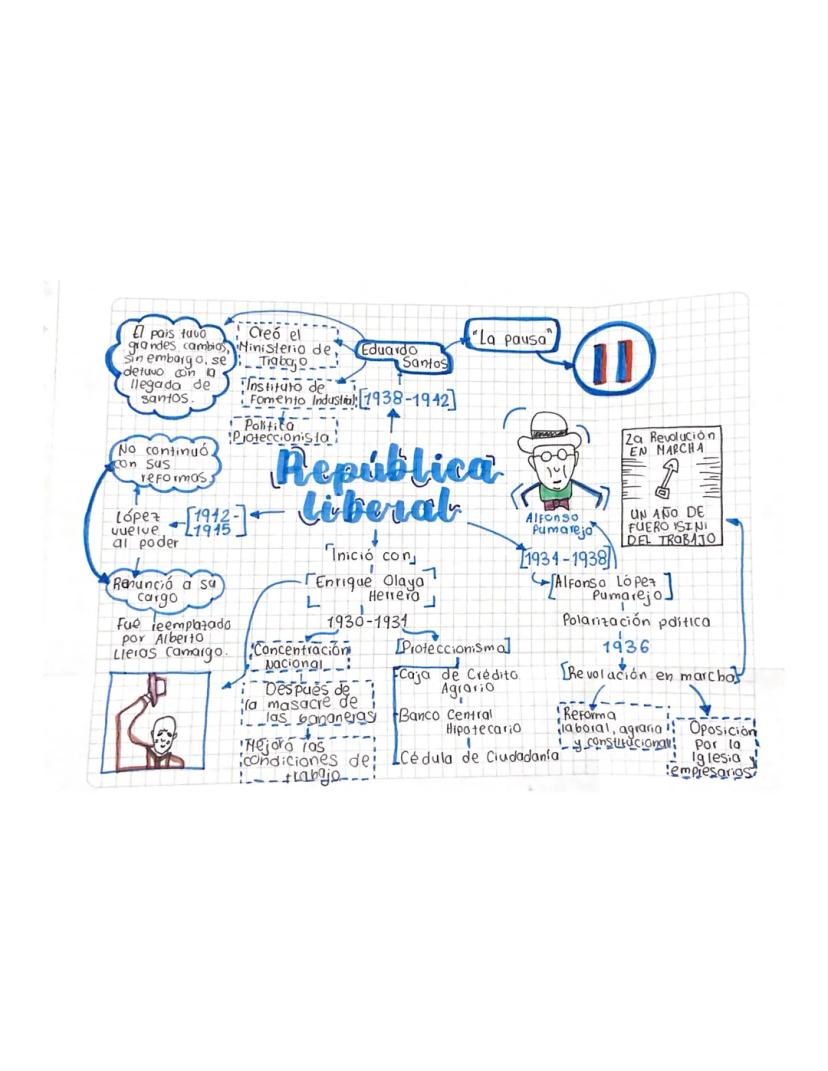 El país tuvo
grandes cambios,
sin embargo, se
detuvo con la
llegada de
santos.
Creó el
Ministerio de
Trabajo
Instituto de
Fomento Industrial
Política
Proteccionista
Eduardo
Santos
[1938-1942]
"La pausa"
República
liberal
No continuó
con sus
reformas
López
vuelve
al poder
[1942-
1945]
Renunció a su
cargo
Fué reemplazado
por Alberto
Lleras Camargo.
Inició con
Enrique Olaya
Herrera
1930-1934
Concentración
Nacional
Después de
la masacre de
las bananeras
Mejoró las
condiciones de
trabajo
[Proteccionismo]
Caja de Crédito
Agrario
Banco Central
Hipotecario
Cédula de Ciudadanía
Alfonso
Pumarejo
[1934-1938]
[Alfonso López
Pumarejo]
Polarización política
1936
[Revolución en marcha]
Reforma
laboral, agraria
y constitucional
Oposición
por la
Iglesia y
empresarios
La Revolución
EN MARCHA
UN AÑO DE
DEL TRABAJO